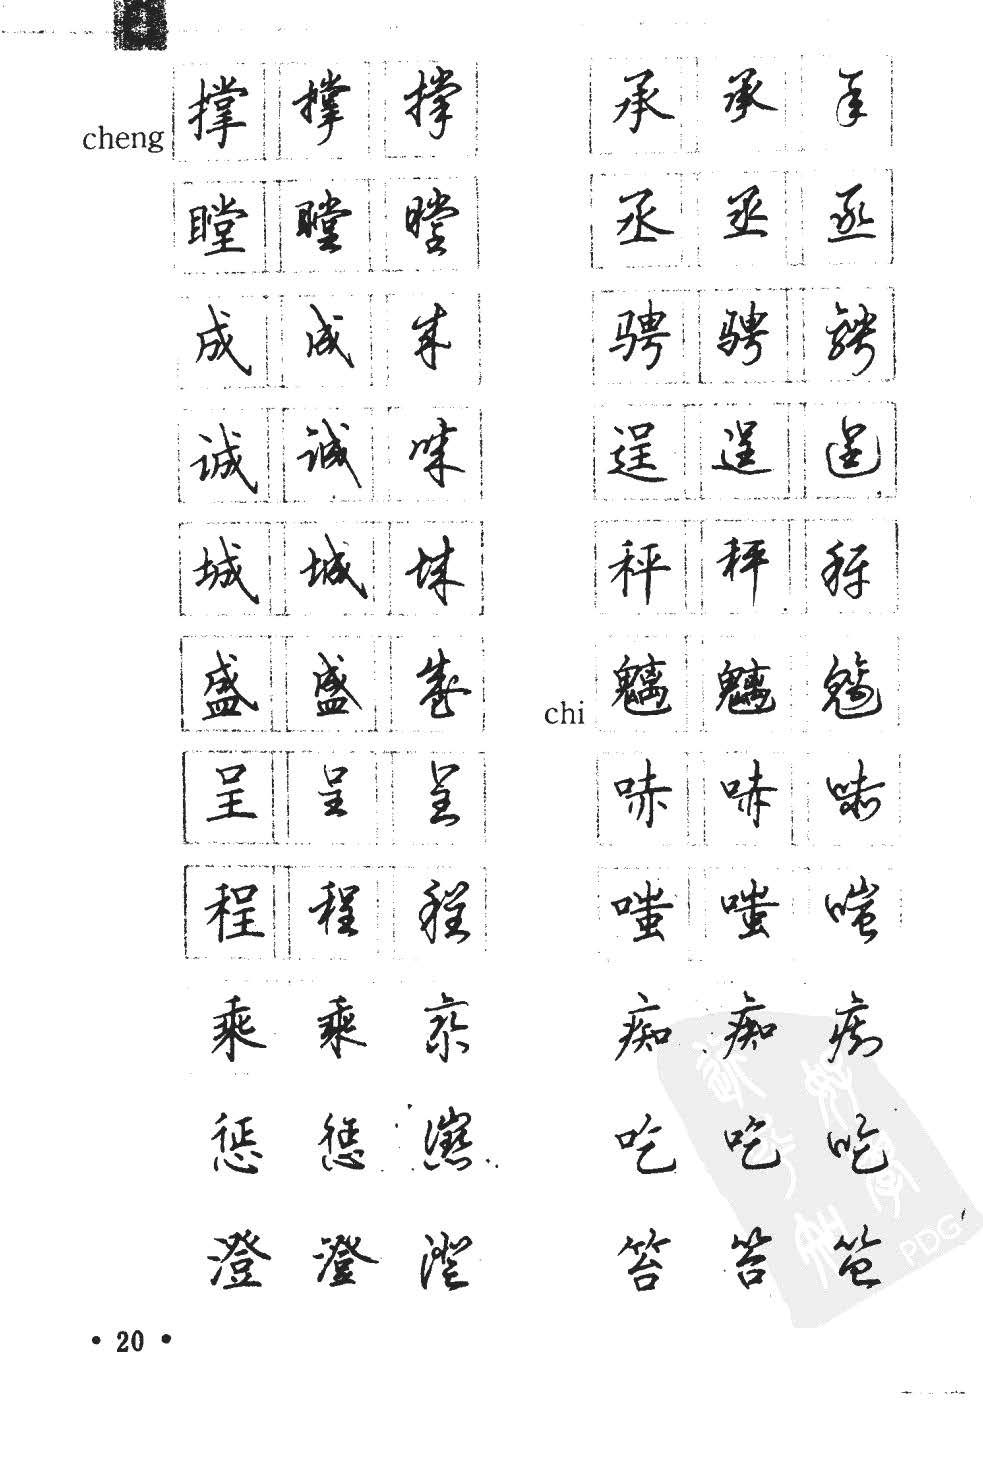 cheng 撑 撑 撑
瞠 瞠 瞠
成 成 成
诚 诚 诚
城 城 城
盛 盛 盛
呈 呈 呈
程 程 程
乘 乘 乘
惩 惩 懲
澄 澄 澄
承 承 承
丞 丞 丞
骋 骋 骋
逞 逞 逞
秤 秤 秤
chi 魑 魑 魑
哧 哧 哧
嗤 嗤 嗤
痴 痴 痴
吃 吃 吃
笞 笞 笞
PDG
• 20 •